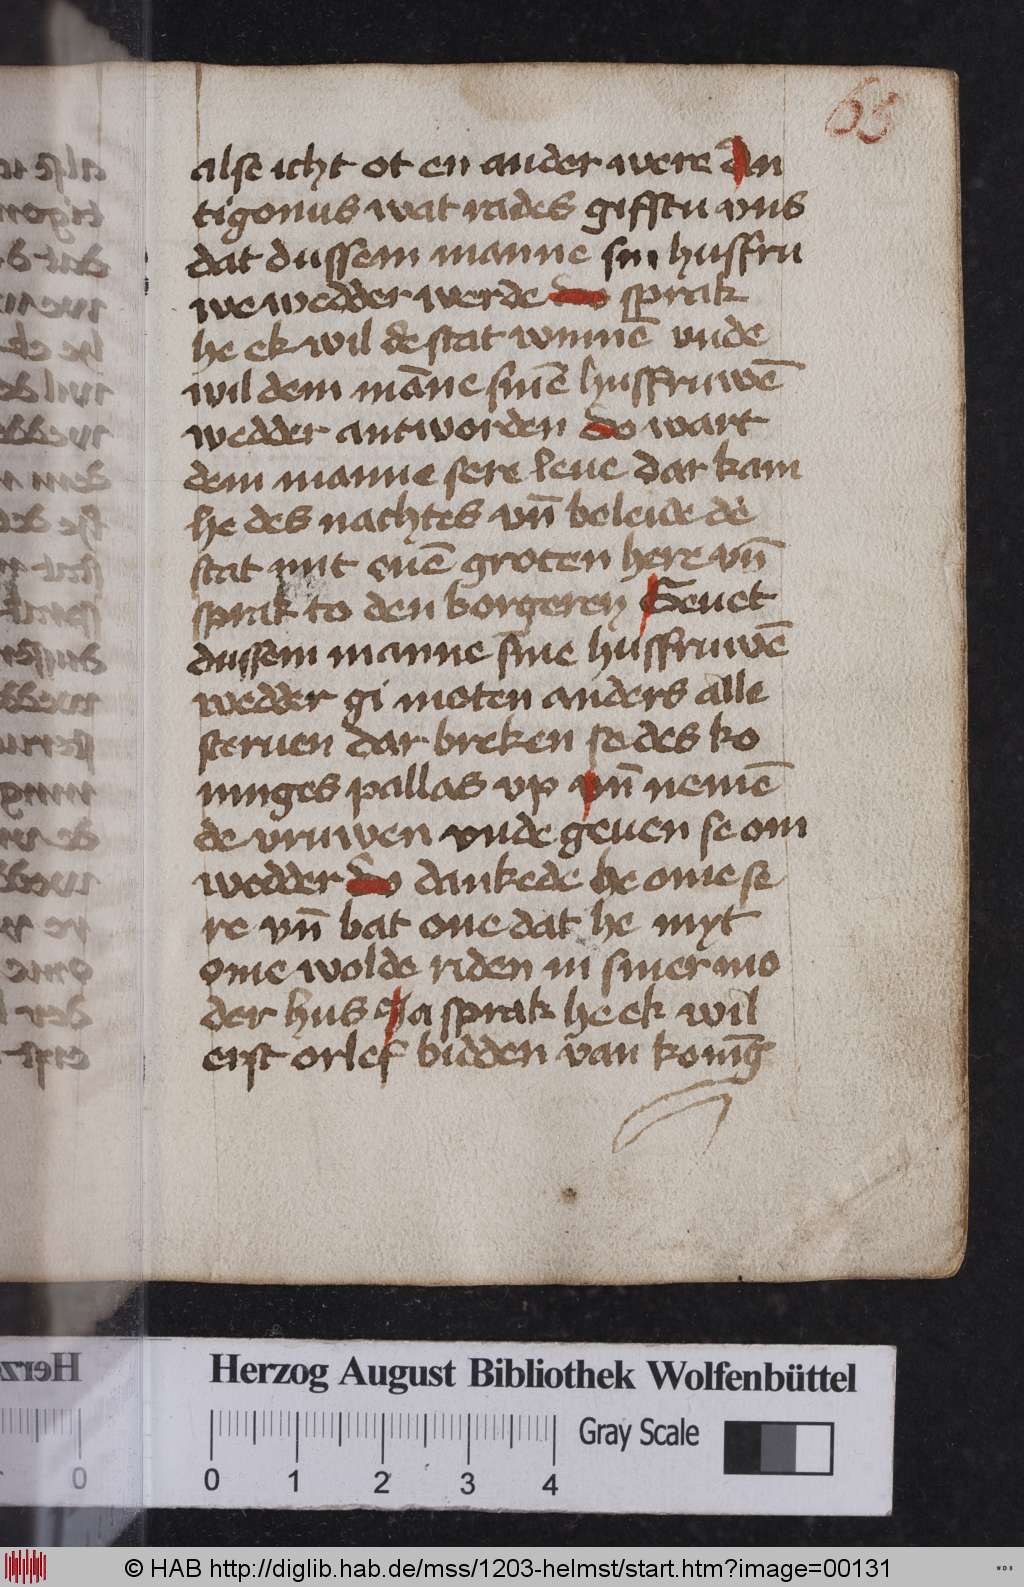 63
alse icht ot en ander were An
tigonus wat rades gifstu vns
dat dussem manne sin husfru
we wedder werde do sprak
he ek wil de stat winnē vnde
wil dem māne sinē husfruwē
wedder antworden do wart
dem manne sere leue dar kam
he des nachtes vn̄ beleide de
stat mit enē groten here vn̄
sprak to den borgeren Geuet
dussem manne sine husfruwē
wedder gi moten anders alle
steruen dar breken se des ko
ninges pallas vp vn̄ nemē
de vruwen vnde geuen se om
wedder do dankede he ome se
re vn̄ bat one dat he myt
ome wolde riden in siner mo
der hus Ja sprak he ek wil
erst orlef bidden van konīg
Herzog August Bibliothek Wolfenbüttel
Gray Scale
0 1 2 3 4
© HAB http://diglib.hab.de/mss/1203-helmst/start.htm?image=00131